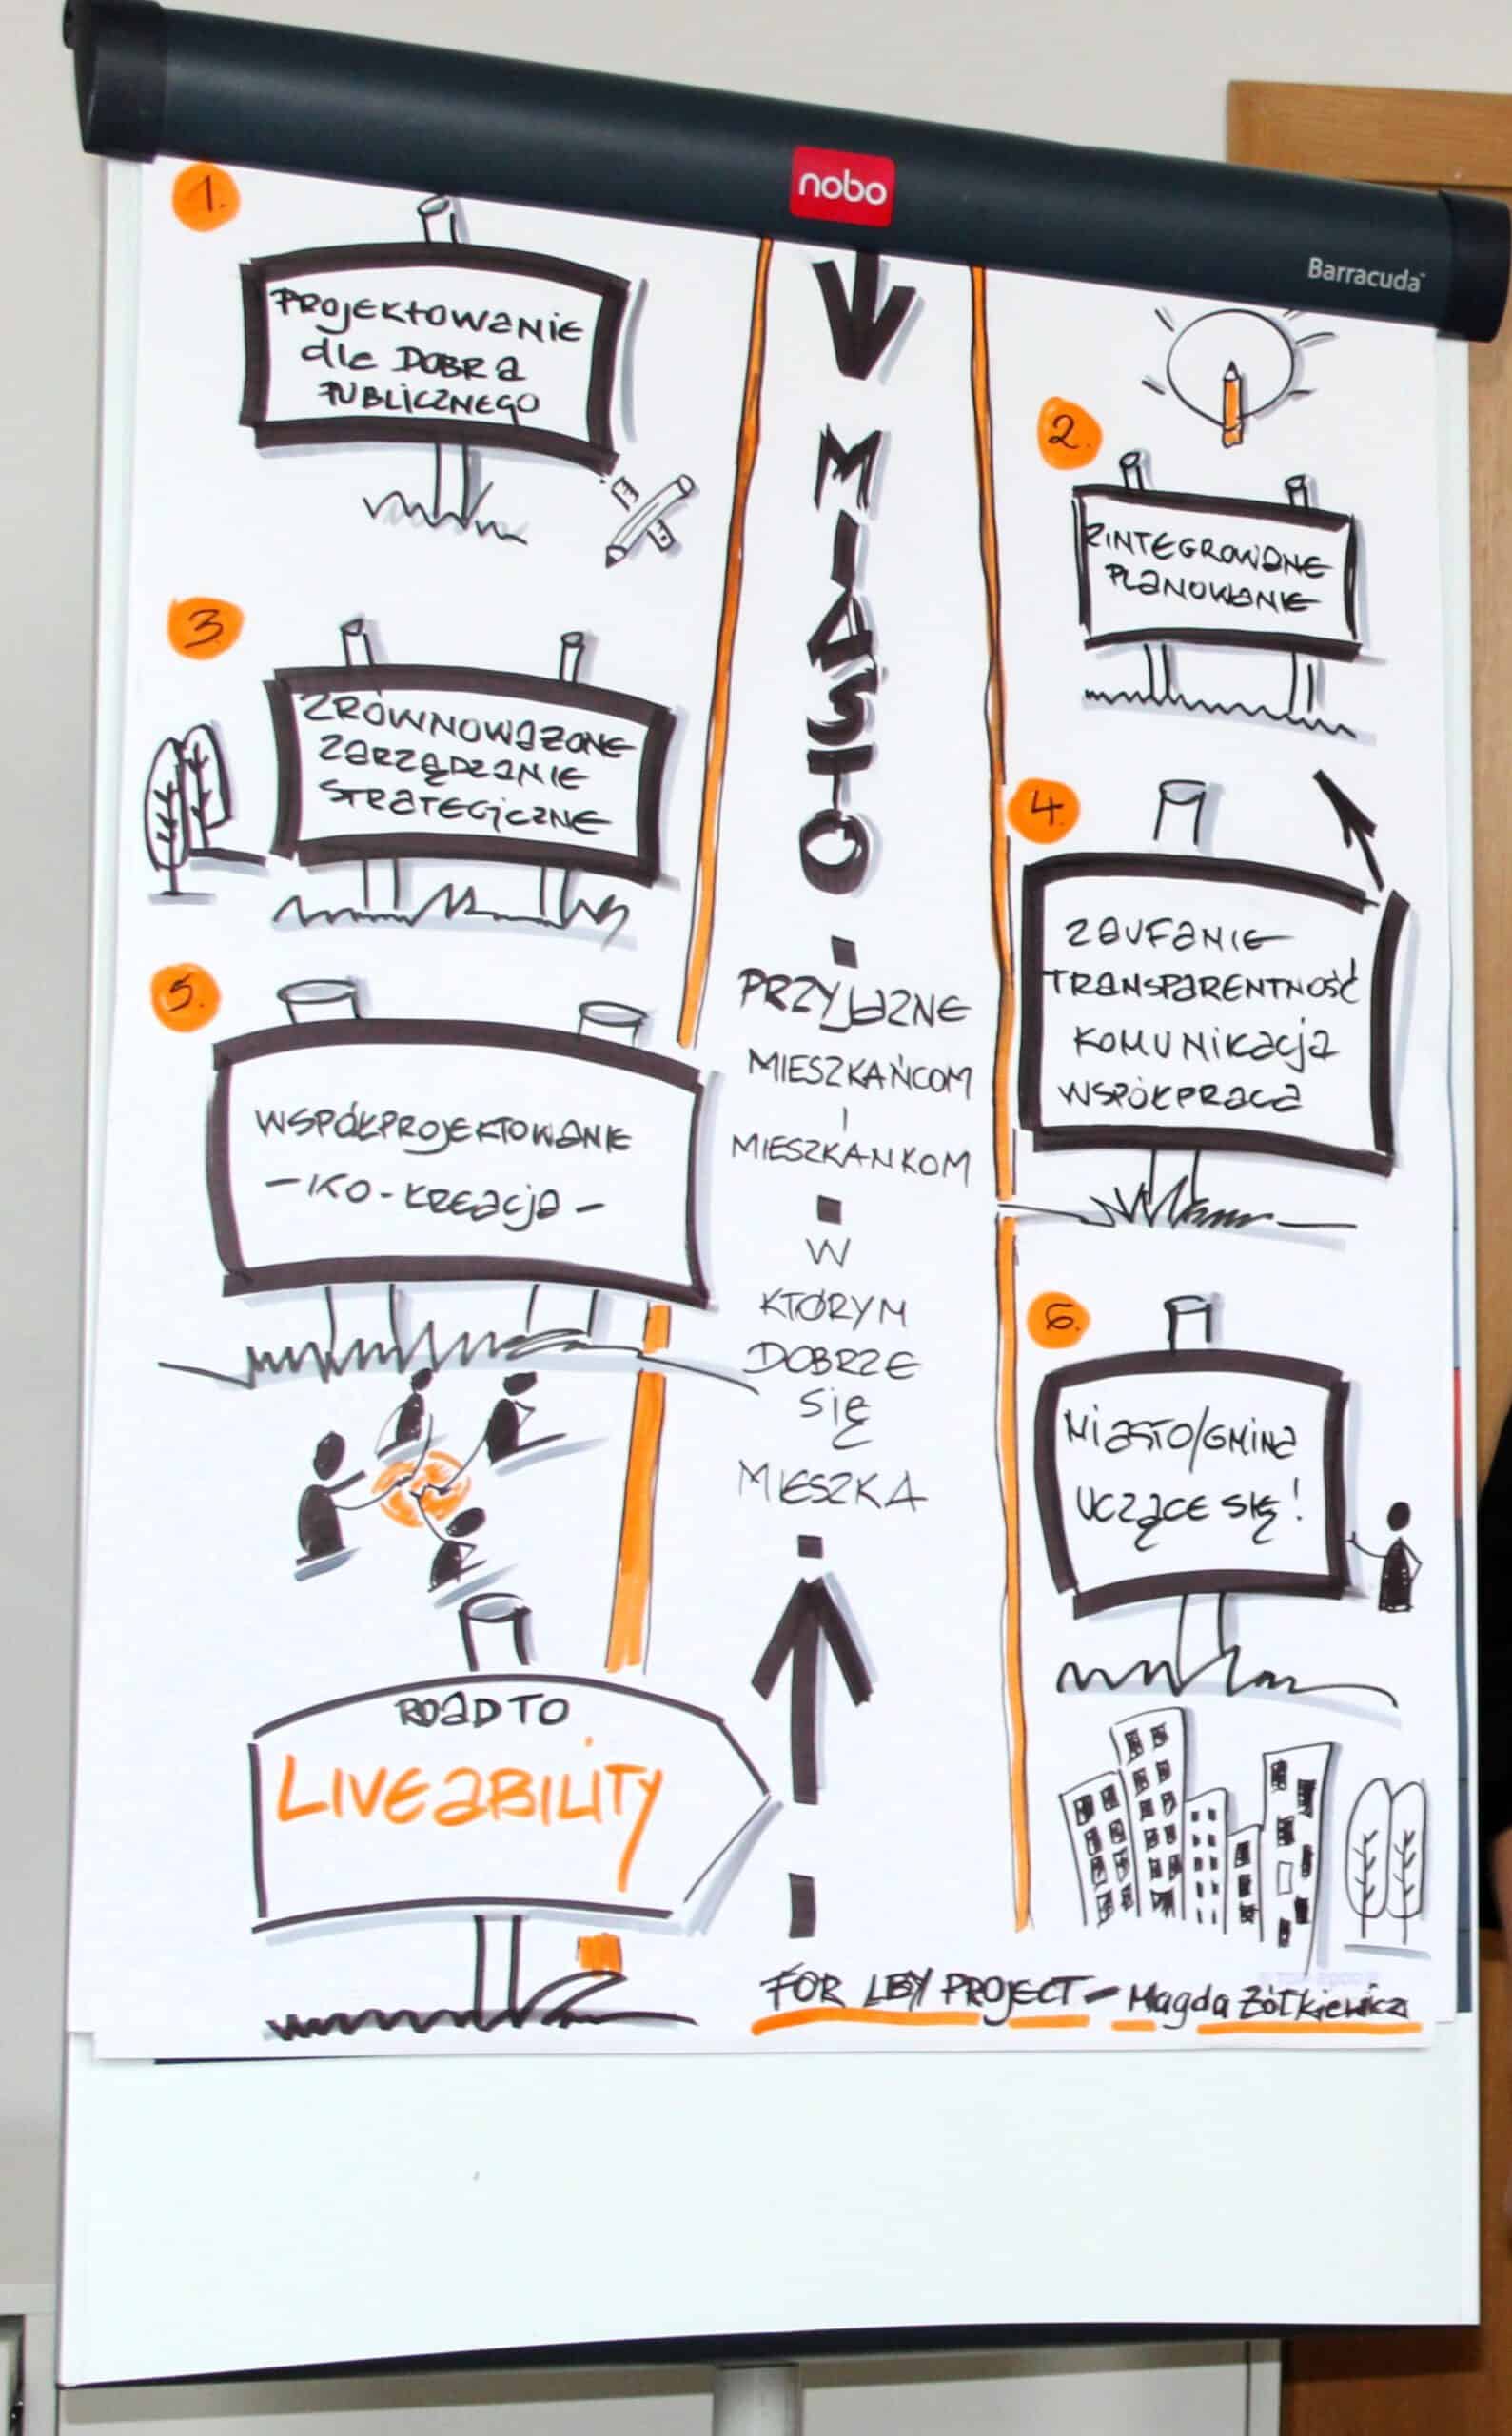 nobo
Barracuda
1.
PROJEKTOWANIE
dla DOBRA
PUBLICZNEGO
2.
ZINTEGROWANE
PLANOWANIE
3
ZRÓWNOWAŻONE
ZARZĄDZANIE
STRATEGICZNE
4.
ZAUFANIE
TRANSPARENTNOŚĆ
KOMUNIKACJA
WSPÓŁPRACA
5.
WSPÓŁPROJEKTOWANIE
- KO-KREACJA -
6.
MIASTO/GMINA
UCZĄCE SIĘ!
MIASTO
PRZYJAZNE
MIESZKAŃCOM
I
MIESZKANKOM
W
KTÓRYM
DOBRZE
SIĘ
MIESZKA
ROAD TO
LIVEABILITY
FOR LBY PROJECT - Magda Żółkiewicz